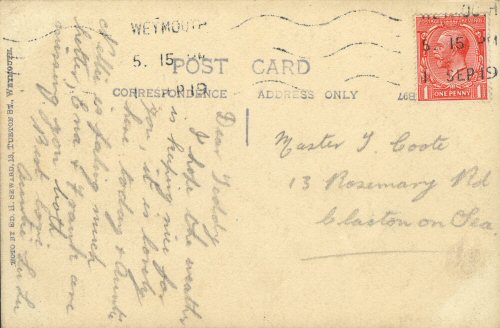 WEYMOUTH
5. 15 PM
1 SEP 19
WEYMOUTH
5. 15 PM
1. SEP 19
ONE PENNY
POST CARD
CORRESPONDENCE
ADDRESS ONLY
897
Dear Teddy
I hope the weather
is keeping nice for
you, it is lovely
here today & Auntie
Nellie is feeling much
better, Ena & Frank are
missing you both
Best love
Auntie Lu Lu
Master T. Coote
13 Rosemary Rd
Clacton on Sea.
PHOTO BY ED. H. SEWARD, 13, TURTON ST., WEYMOUTH.